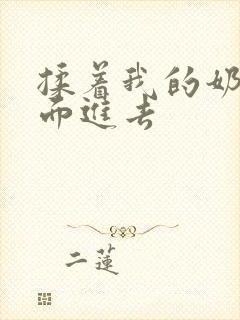 揉着我的奶
而进去
二莲